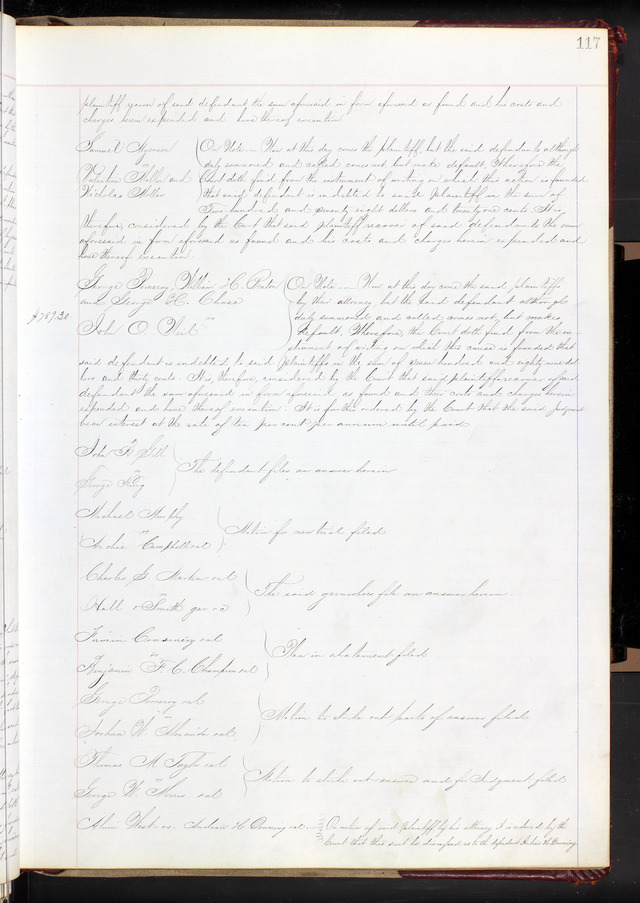 117
plaintiff recover of said defendant the sum aforesaid in form aforesaid as found and his costs and
charges herein expended and have thereof execution
Samuel
On Note — Now at this day comes the plaintiff but the said defendants although
duly summoned and called comes not but make default. Wherefore the
Valentine Miller and
Court doth find from the instrument of writing on which this action is founded
Nicholas Miller
that said defendant is indebted to said plaintiff in the sum of
Two hundred and seventy eight dollars and twenty one cents. It is
therefore considered by the Court that said plaintiff recover of said defendants the sum
aforesaid in form aforesaid as found and his costs and charges herein expended and
have thereof execution
George Pomeroy, William H. Porter
On Note — Now at this day come the said plaintiffs
and George H. Chase
by their attorney but the said defendant although
$789.30
vs
duly summoned and called comes not, but makes
John O
default. Wherefore, the Court doth find from the in-
strument of writing on which this cause is founded that
said defendant is indebted to said plaintiffs in the sum of seven hundred and eighty nine dol
lars and thirty cents. It is, therefore, considered by the Court that said plaintiffs recover of said
defendant the sum aforesaid in form aforesaid as found and their costs and charges herein
expended and have thereof execution. It is further ordered by the Court that the said Judgment
bear interest at the rate of ten per cent per annum until paid
John H. Gill
vs
The defendant files an answer herein
George
Michael Murphy
vs
Motion for new trial filed
Campbell et al
Charles G. et al
vs
The said garnishees file an answer herein
Hall & Smith gar
et al
vs
Plea in abatement filed
Benjamin F. C. Champion et al
George Pomeroy et al
vs
Motion to strike out parts of answer filed
Joshua W. Alexander et al
Thomas M. Taylor et al
vs
Motion to strike out answer and for Judgment filed
George W. et al
Alvin West vs. Andrew H. et al
On motion of said plaintiff by his attorney it is ordered by the
Court that this suit be dismissed as to the defendant Andrew H.